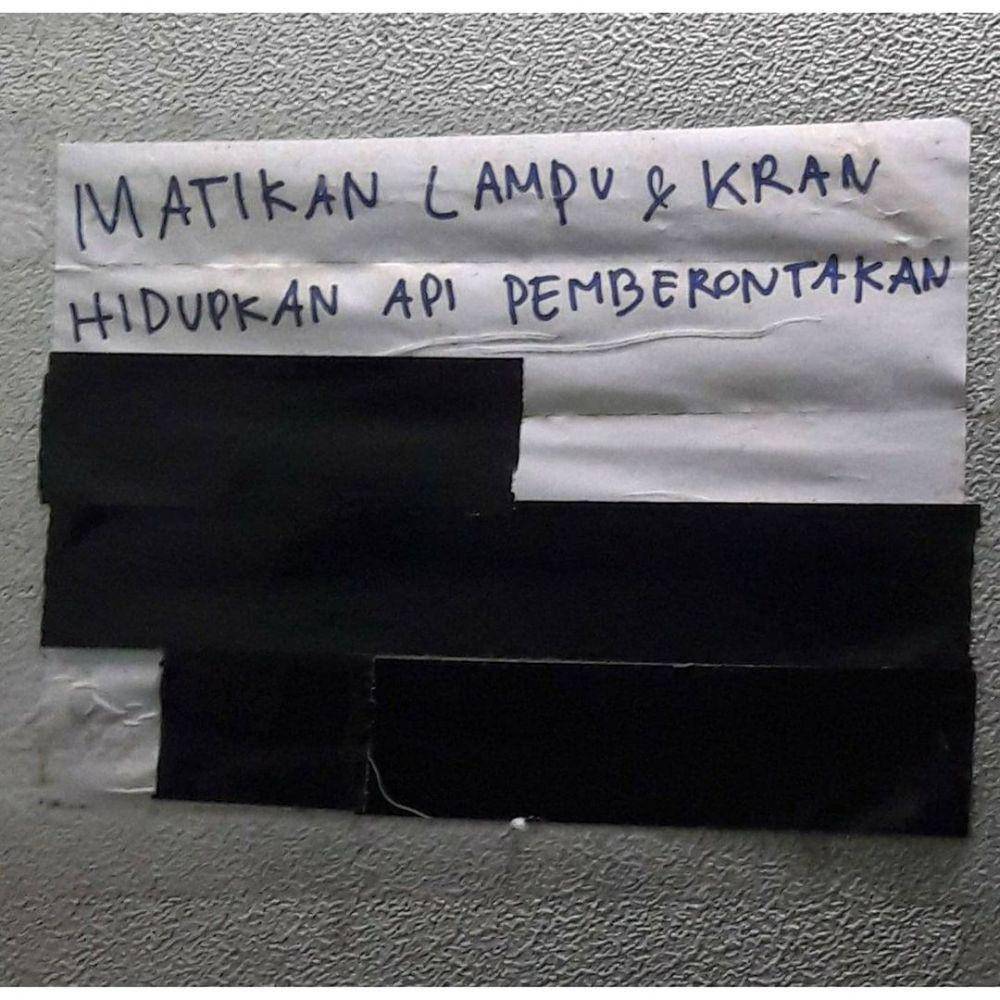 MATIKAN LAMPU & KRAN
HIDUPKAN API PEMBERONTAKAN